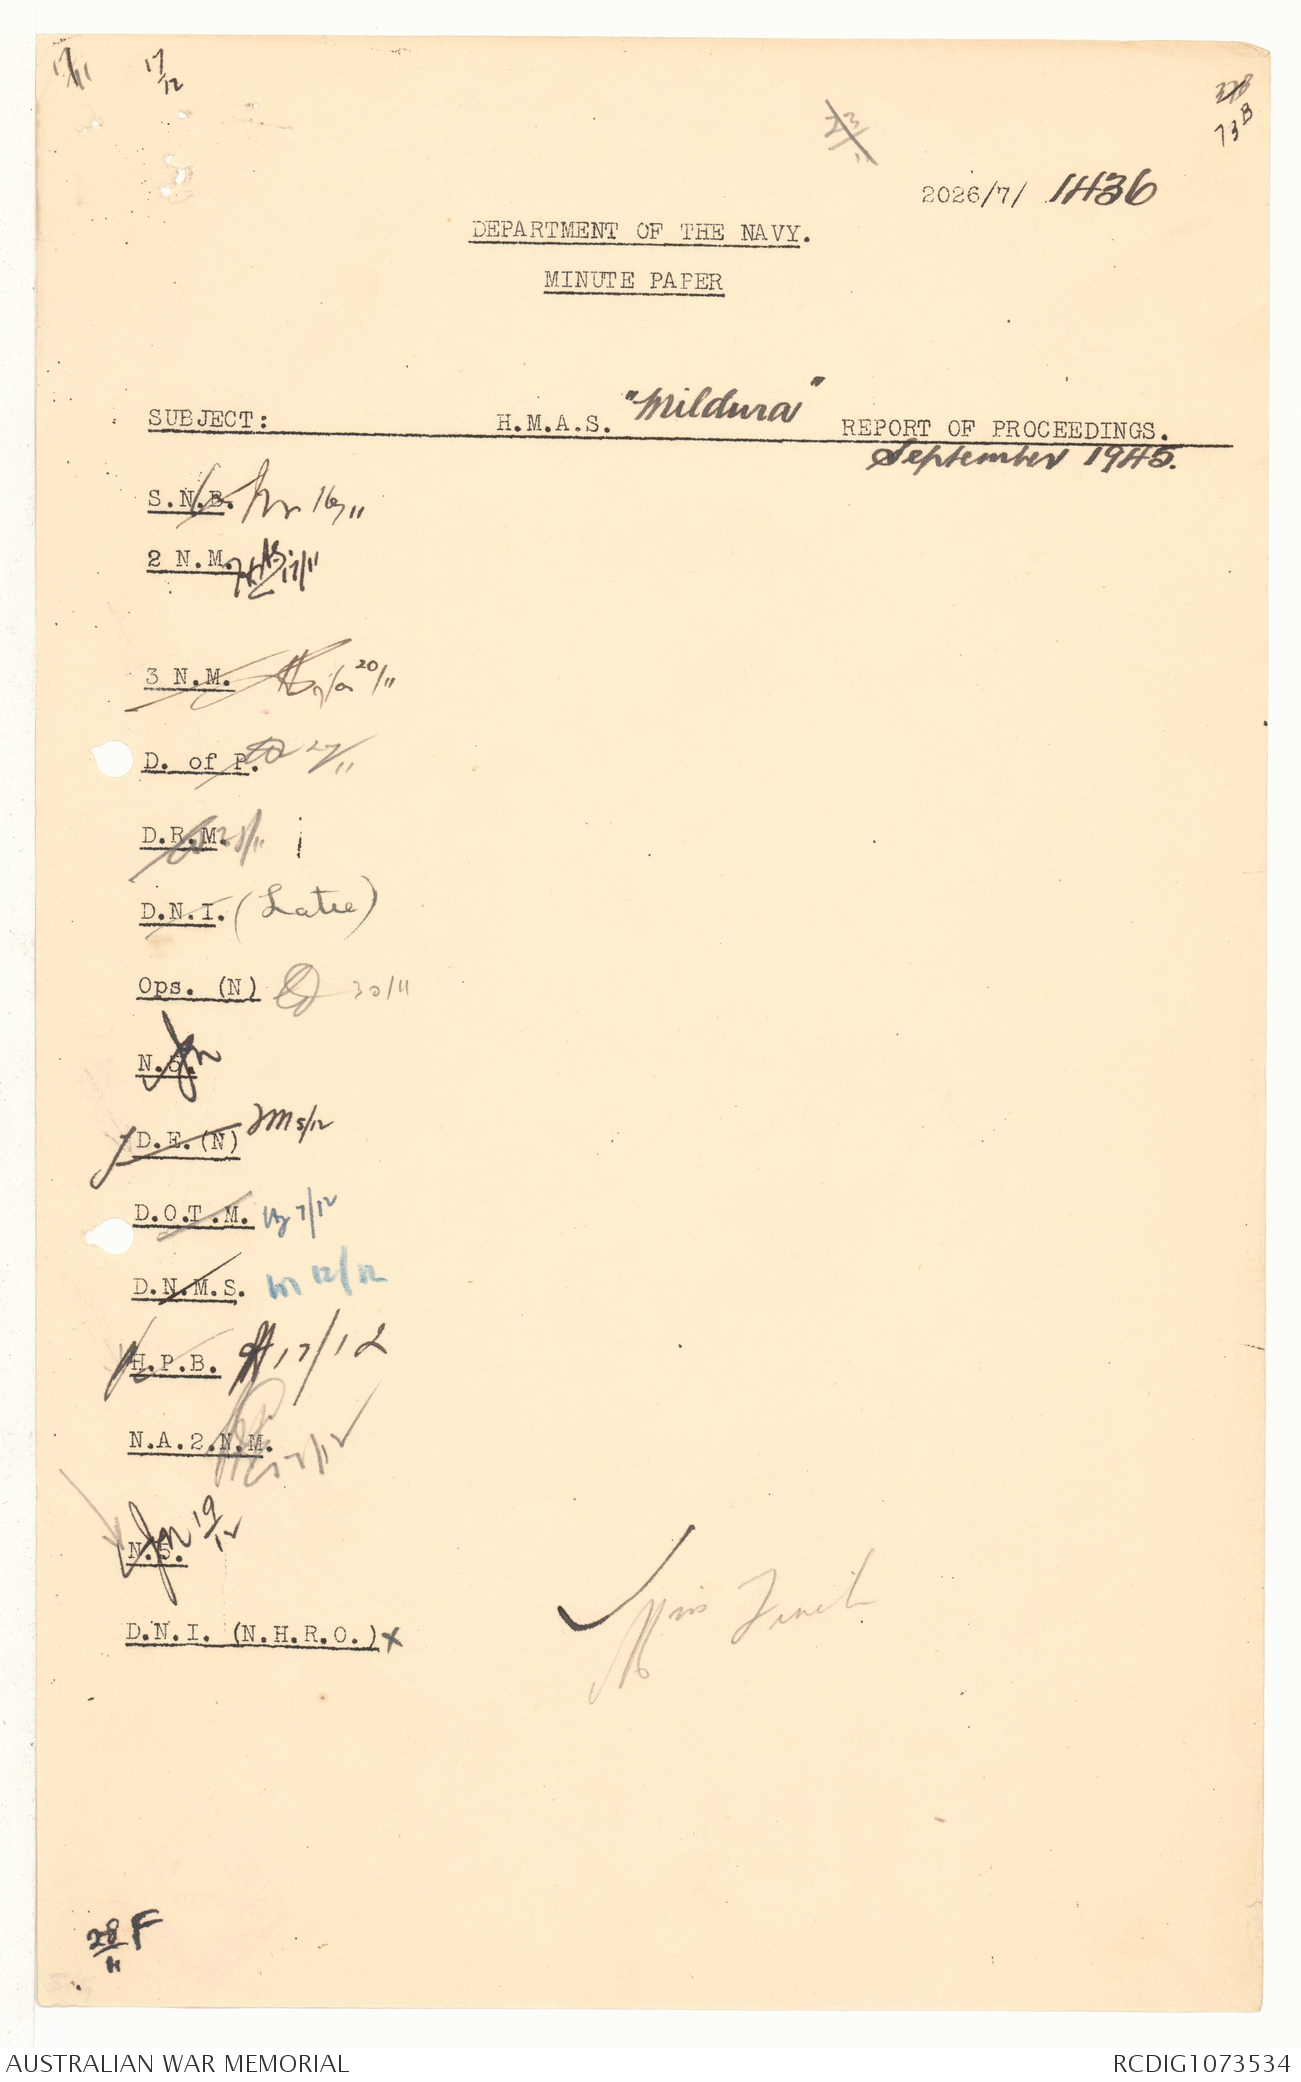 17/11 17/12
23/11
73B
2026/7/ 1436
DEPARTMENT OF THE NAVY.
MINUTE PAPER
SUBJECT: H.M.A.S. "Mildura" REPORT OF PROCEEDINGS.
September 1945.
S.N.B. 16/11
2 N.M. 17/11
3 N.M. 20/11
D. of P. 27/11
D.R.M. /11
D.N.I. (Later)
Ops. (N) 30/11
N.5.
D.E.(N) 5/12
D.O.T.M. 7/12
D.N.M.S. 12/12
H.P.B. 17/12
N.A.2.N.M. /12
N.5. 19/12
Miss
D.N.I. (N.H.R.O.)x
28/11 F
AUSTRALIAN WAR MEMORIAL RCDIG1073534